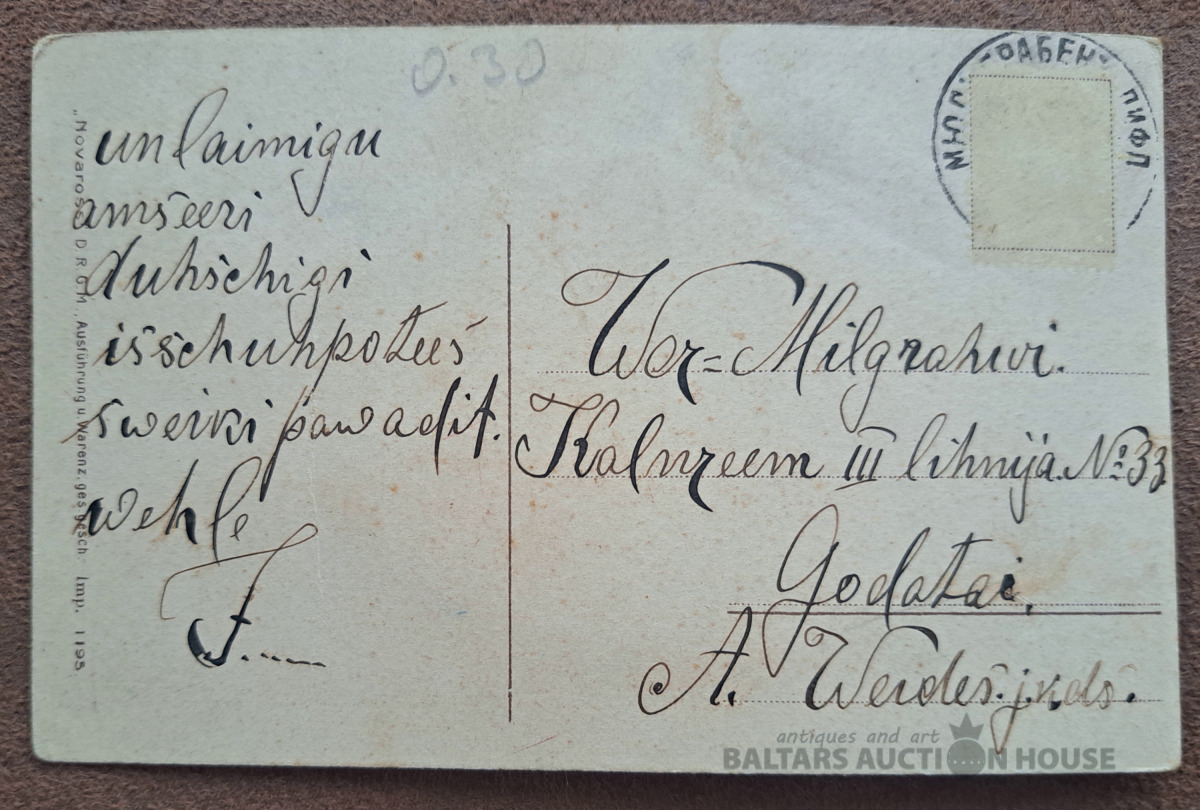 0.30
un laimigu
amšeeri
duhšchigi
isšchuhpotees
sweiki pawadit.
wehle
J.....
"Novaros" D R G M. Ausführung u. Warenz. ges. gesch. Imp. 1195
МЮЛ. РАБЕН ЛИФЛ
Wez=Milgrahwi.
Kalnzeem III lihnijâ. № 33
Godatai,
A. Weides. jkds.
antiques and art
BALTARS AUCTION HOUSE